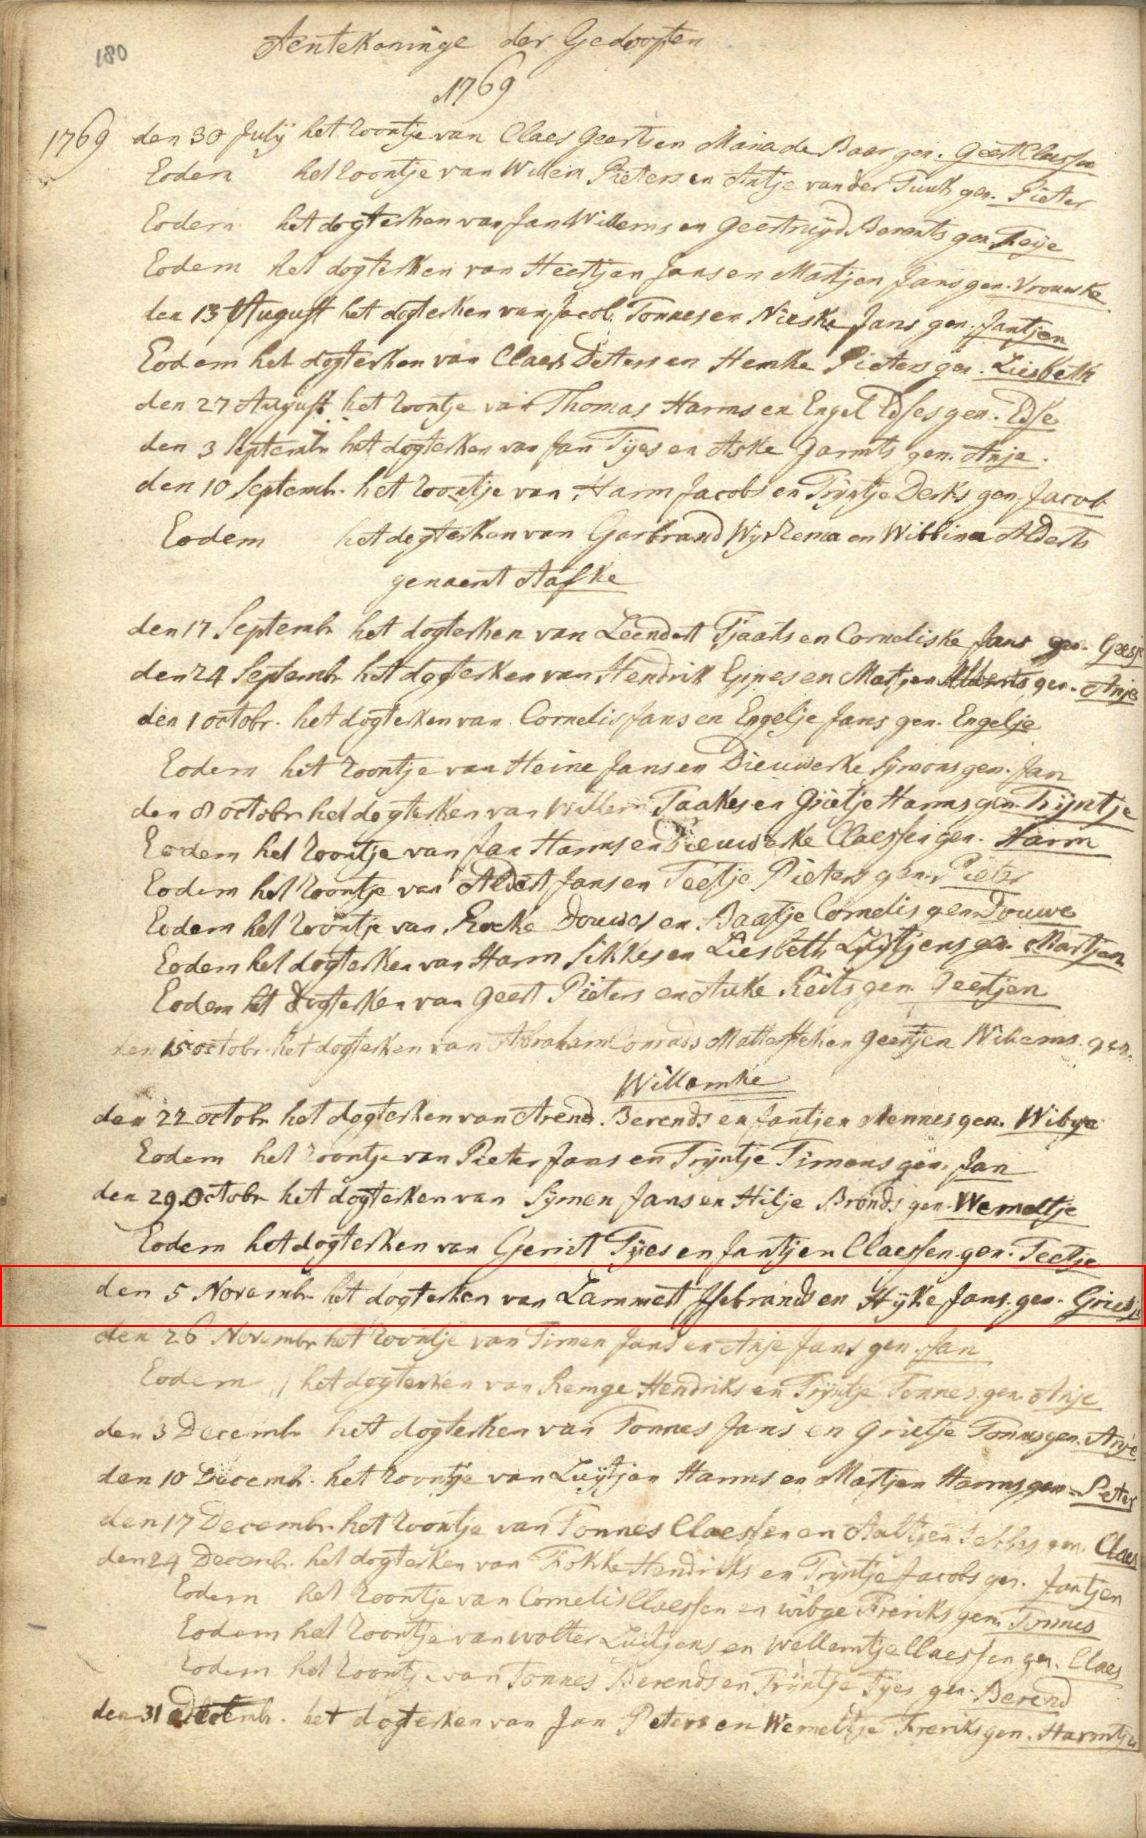 180
Aentekeninge der Gedoopten
1769
1769 den 30 July het zoontje van Claes Geerts en Maria de Baar gen. Geert Claessen
Eodem het zoontje van Willem Pieters en Antje van der Tuuk gen. Pieter
Eodem het dogterken van Jan Willems en Geertruyd Barents gen.
Eodem het dogterken van Heertjen Jans en Martjen Jans gen. Vrouwke
den 13 August het dogterken van Jacob Tonnes en Nieske Jans gen. Jantjen
Eodem het dogterken van Claes Detters en Hemke Pieters gen. Liesbeth
den 27 August het zoontje van Thomas Harms en Engel Edses gen. Edse
den 3 Septembr het dogterken van Jan Tyes en Aske Garmts gen. Anje.
den 10 Septemb. het zoontje van Harm Jacobs en Tryntje Derks gen. Jacob
Eodem het dogterken van Garbrand Wykema en Wibbina Alderts
genaemt Aafke
den 17 Septembr het dogterken van Leendert Tjaarts en Corneliske Jans gen.
den 24 Septembr het dogterken van Hendrik Eppes en Martjen Alberts gen. Anje
den 1 octobr. het dogterken van Cornelis Jans en Engelje Jans gen. Engelje
Eodem het zoontje van Heine Jans en Dieuwerke Symons gen. Jan
den 8 octobr het dogterken van Willem Taakes en Grietje Harms gen. Tryntje
Eodem het zoontje van Jan Harms en Dieuwerke Claessen gen. Harm
Eodem het zoontje van Aldert Jans en Teetje Pieters gen. Pieter
Eodem het zoontje van Roeke Douwes en Baatje Cornelis gen Douwe
Eodem het dogterken van Harm Sikkes en Liesbeth Luytjens gen. Martjen
Eodem het dogterken van Geert Pieters en Auke Reits gen. Geertjen
den 15 octobr. het dogterken van Abraham Conrads en Geertjen Willems. gen.
Willemke
den 22 octobr het dogterken van Arend Berends en Jantjen Mennes gen. Wibge
Eodem het zoontje van Pieter Jans en Tryntje Timens gen. Jan
den 29 Octobr het dogterken van Symen Jans en Hilje Bronds gen. Wemeltje
Eodem het dogterken van Gerrit Tyes en Jantjen Claessen gen. Teetje
den 5 Novembr het dogterken van Lammert Ysebrands en Hyke Jans. gen. Grietje
den 26 Novembr het zoontje van Timen Jans en Anje Jans gen. Jan
Eodem het dogterken van Remge Hendriks en Tryntje Tonnes gen. Anje
den 3 Decembr het dogterken van Tonnes Jans en Grietje Tonnes gen. Anje
den 10 Decemb. het zoontje van Luytjen Harms en Martjen Harms gen. Peter
den 17 Decembr het zoontje van Tonnes Claessen en Aaltjen gen. Claes
den 24 Decemb. het dogterken van Fokke Hendriks en Tryntje Jacobs gen. Jantjen
Eodem het zoontje van Cornelis Claessen en Wibge Freriks gen. Tonnes
Eodem het zoontje van Wolter Luitjens en Wellemtje Claessen gen. Claes
Eodem het zoontje van Tonnes Berends en Tryntje Tyes gen. Berend
den 31 Decembr. het dogterken van Jan Peters en Wemeltje Freriks gen. Harmtje